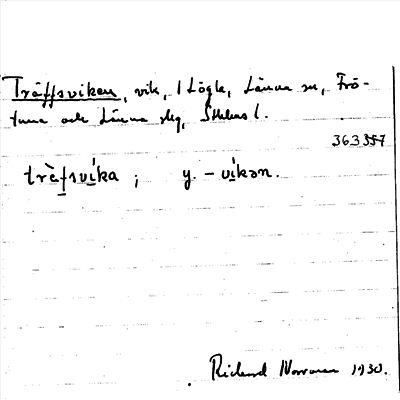 Träffsviken, vik, i Lögla, Länna sn, Frö-
tuna och Länna skg, Sthlms l.
363357
trèfsvíka ; y. -víkən.
Rickard Norrman 1930.